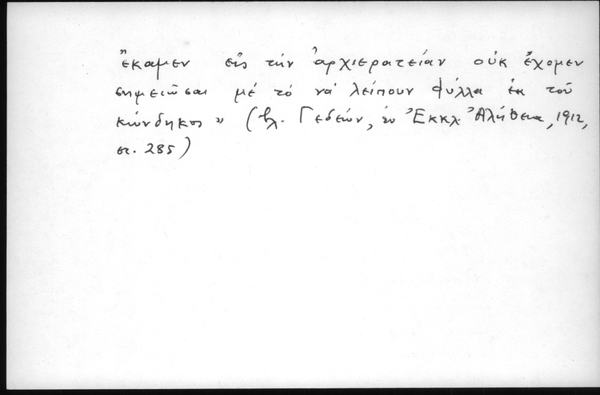 ἔκαμεν εἰς τὴν ἀρχιερατείαν οὐκ ἔχομεν
σημειῶσαι μὲ τὸ νὰ λείπουν φύλλα ἐκ τοῦ
κώνδηκος » (βλ. Γεδεών, ἐν Ἐκκλ. Ἀλήθεια, 1912,
σ. 285)